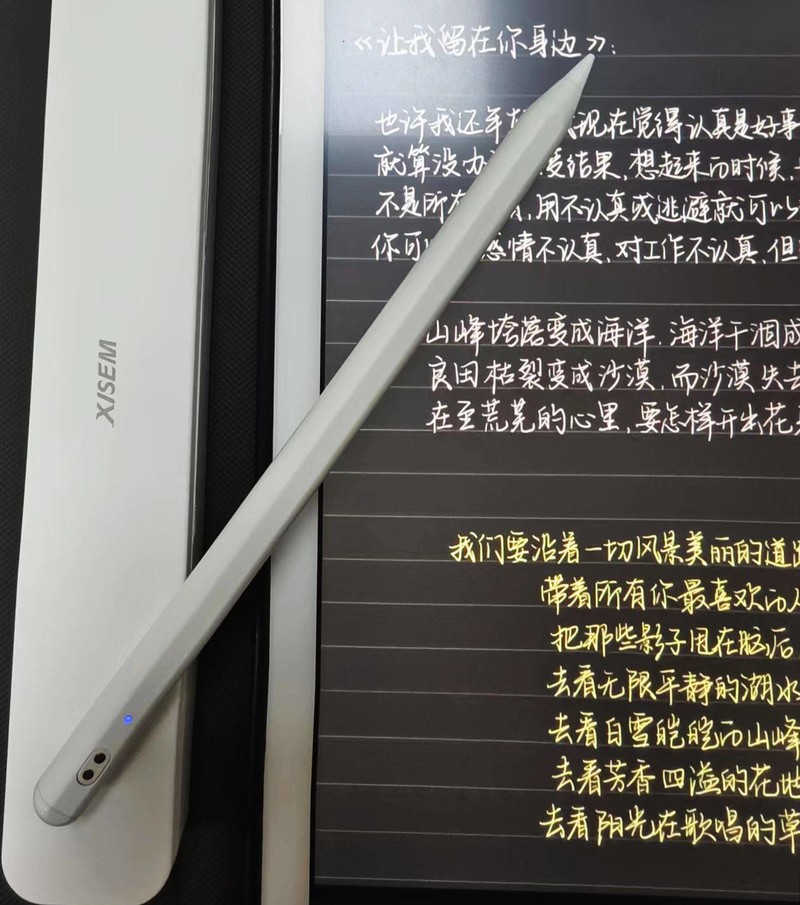 XISEM
《让我留在你身边》:
也许我还年 现在觉得认真是好事
就算没办 结果,想起来的时候,
不是所 ,用不认真或逃避就可以
你可 感情不认真,对工作不认真,但
山峰垮塌变成海洋,海洋干涸成
良田枯裂变成沙漠,而沙漠失去
在至荒芜的心里,要怎样开出花
我们要沿着一切风景美丽的道路
带着所有你最喜欢的人
把那些影子甩在脑后
去看无限平静的湖水
去看白雪皑皑的山峰
去看芳香四溢的花地
去看阳光在歌唱的草